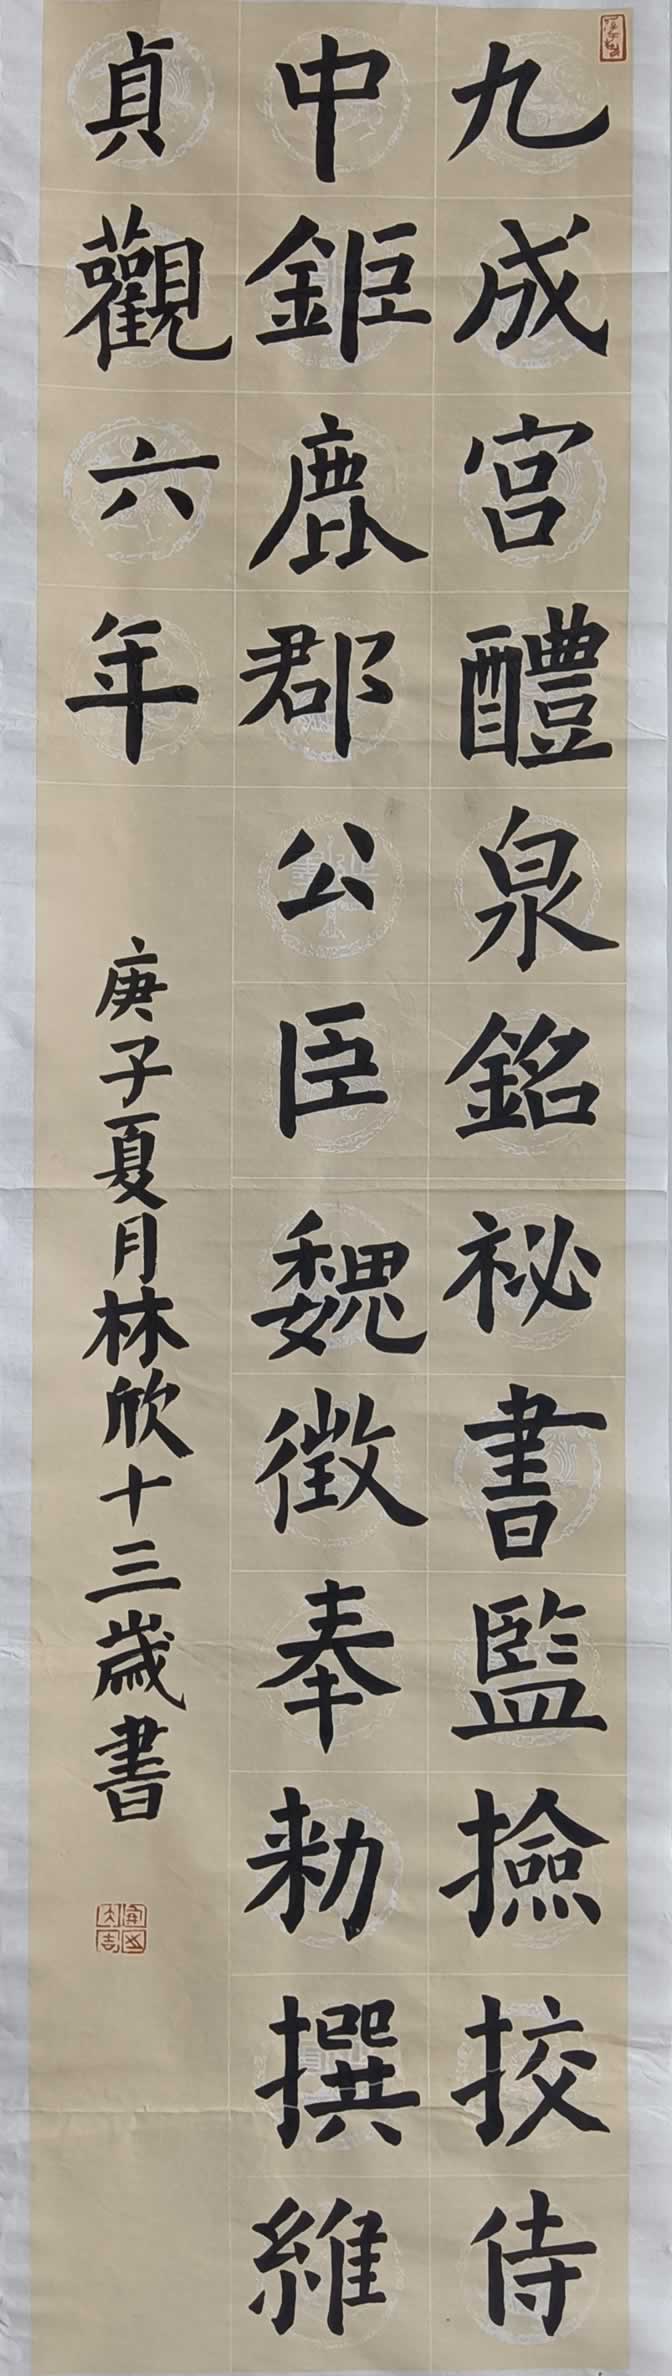 九成宮醴泉銘祕書監撿挍侍
中鉅鹿郡公臣魏徵奉勑撰維
貞觀六年
庚子夏月林欣十三歲書